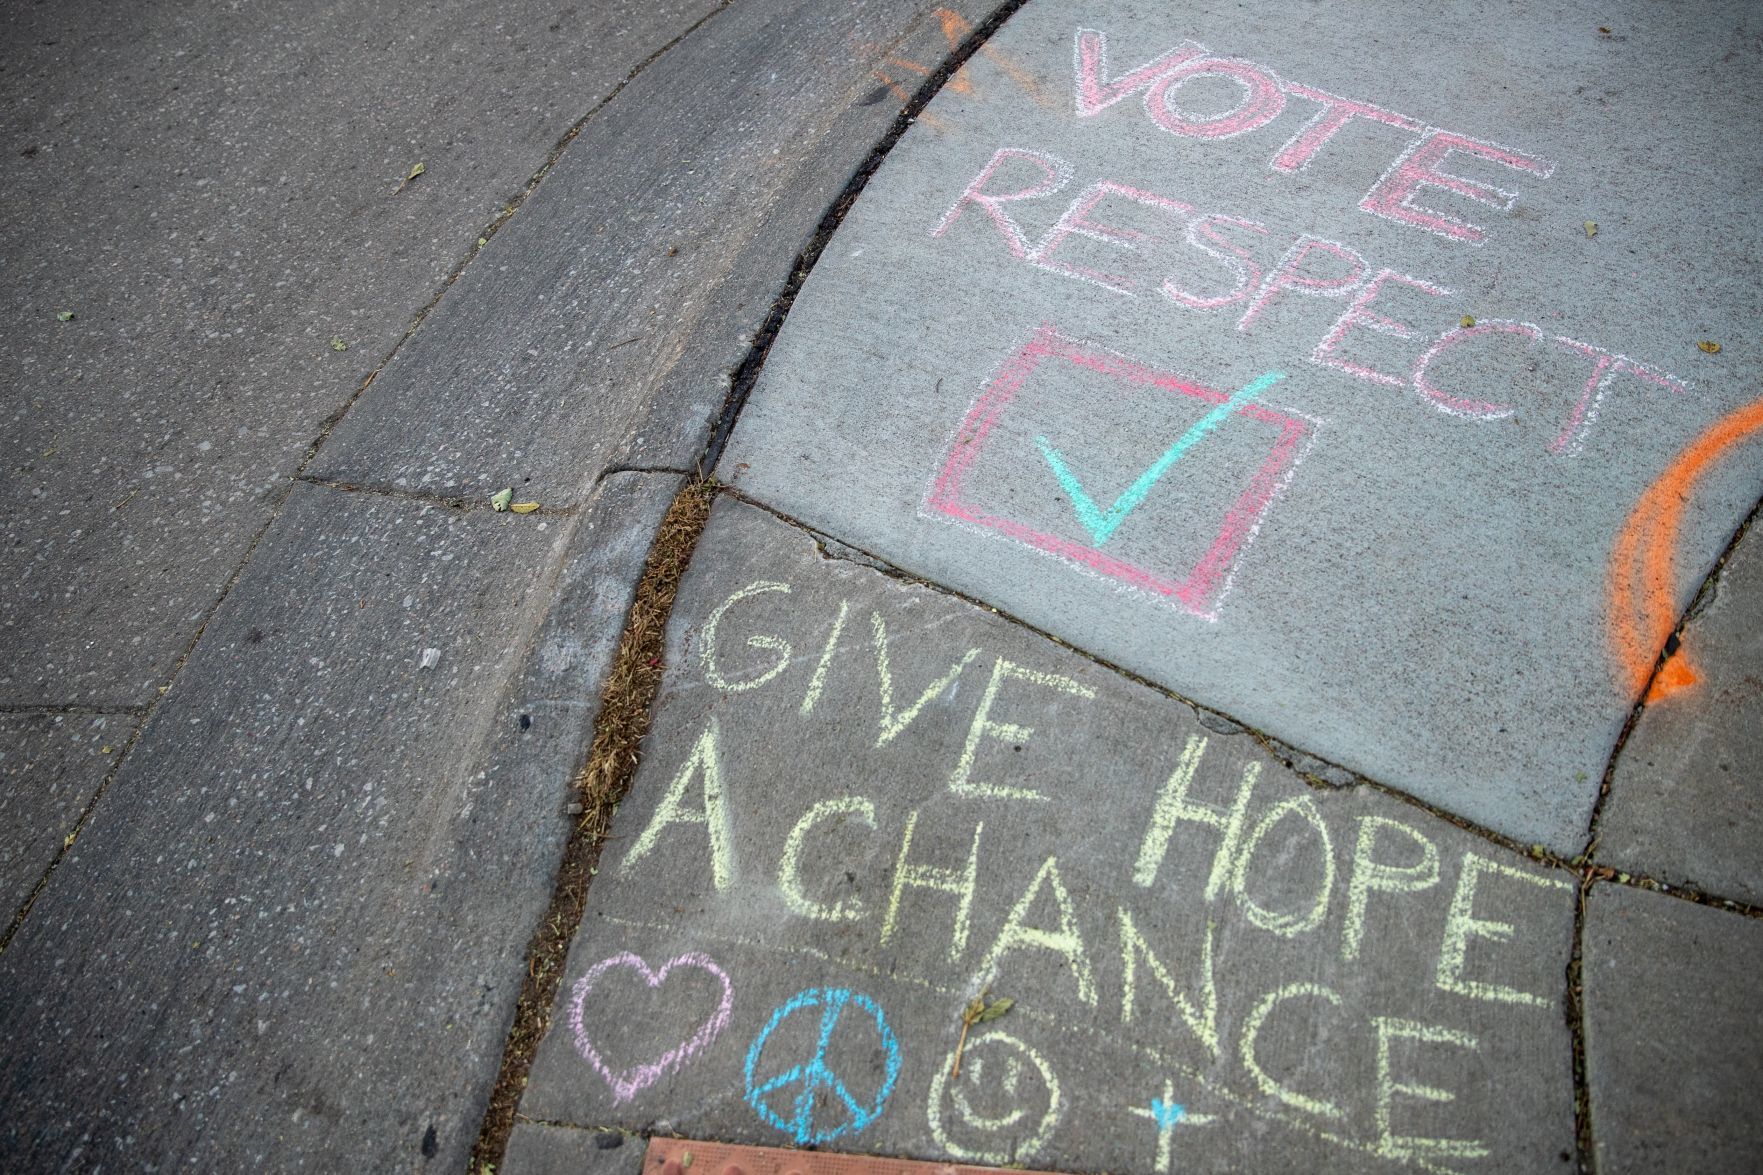 VOTE
RESPECT
GIVE HOPE
A CHANCE